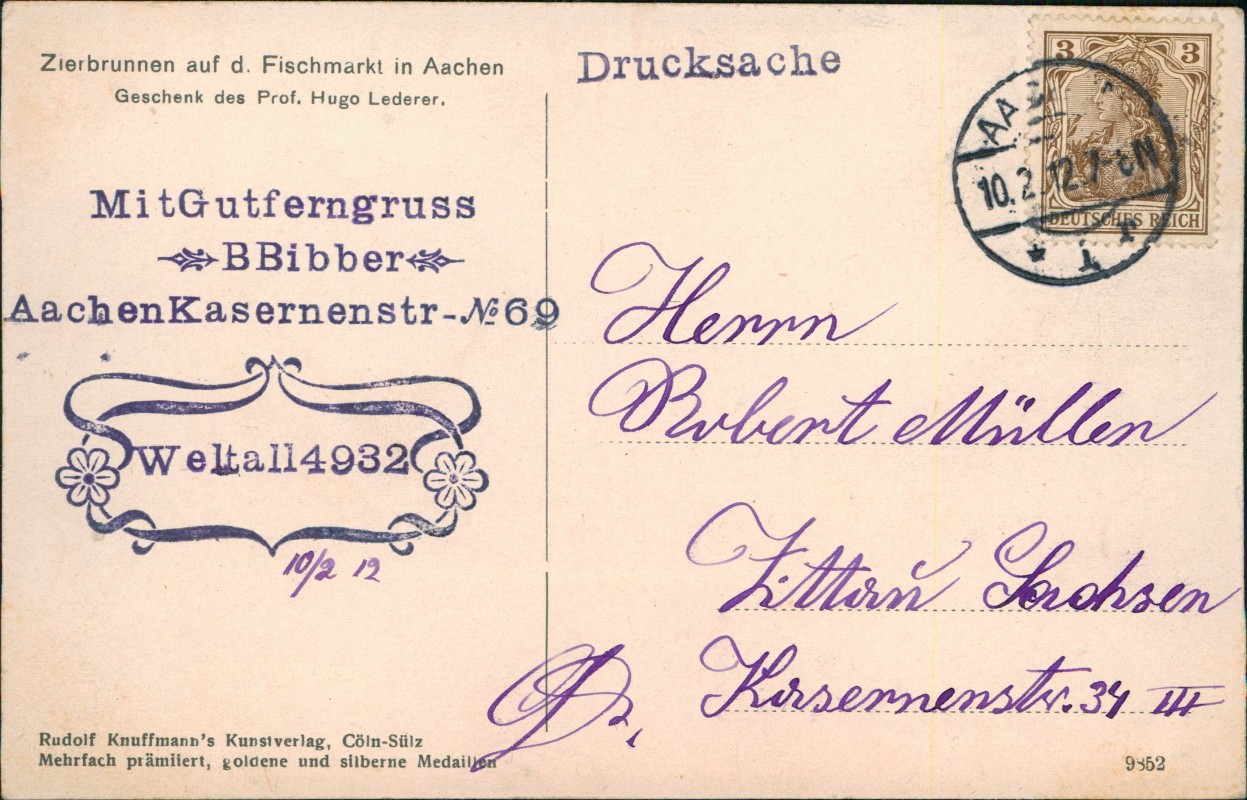 Zierbrunnen auf d. Fischmarkt in Aachen
Geschenk des Prof. Hugo Lederer.
MitGutferngruss
BBibber
AachenKasernenstr-№69
Weltall4932
10/2 12
Rudolf Knuffmann's Kunstverlag, Cöln-Sülz
Mehrfach prämiiert, goldene und silberne Medaillen
Drucksache
3 3
DEUTSCHES REICH
AA
10.2.12.7-8N
Herrn
Robert Müller
Zittau Sachsen
Kasernenstr. 34 III
9852